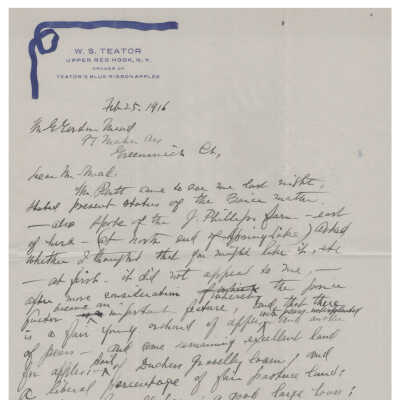 W. S. TEATOR
UPPER RED HOOK, N.Y.
GROWER OF
TEATOR'S BLUE RIBBON APPLES
Feb 25, 1916
Mr Gordon Mead
97 Ave
Greenwich Ct,
Dear Mr Mead:
Mr came to see me last night,
Stated present status of the matter.
— also spoke of the J. Phillips farm — east
of here — (at north end of Spring Lake) Asked
whether I thought that you might like it, etc
— at first — it did not appear to me, —
after more consideration the
factor being an important feature, and, that there
is a fair young orchard of apples, and another
of pears — and some remaining excellent land
for apples: — and of Dutchess Gravelly loam; and
a liberal percentage of fair pasture land;
a good large